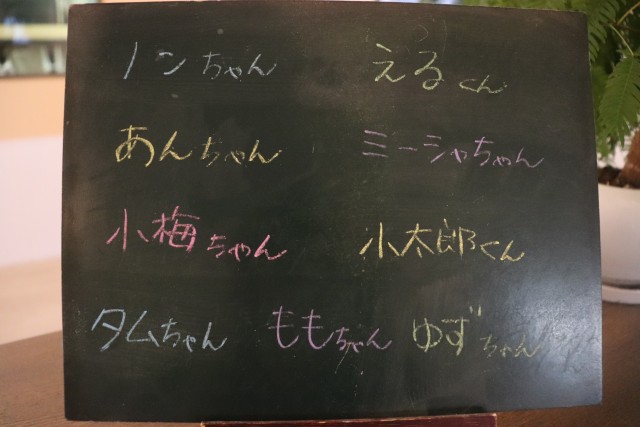 ノンちゃん えるくん
あんちゃん ミーシャちゃん
小梅ちゃん 小太郎くん
タムちゃん ももちゃん ゆずちゃん